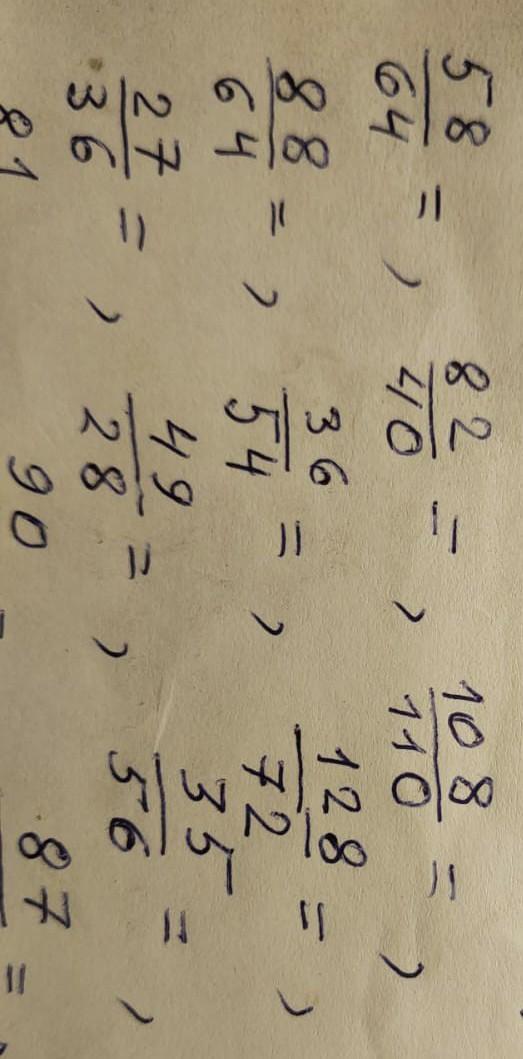 58/64 = , 82/40 = , 108/110 = ,
88/64 = , 36/54 = , 128/72 = ,
27/36 = , 49/28 = , 35/56 = ,
81 90 87 = ,